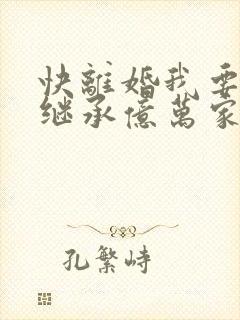 快離婚我要
继承億萬家
孔繁峙